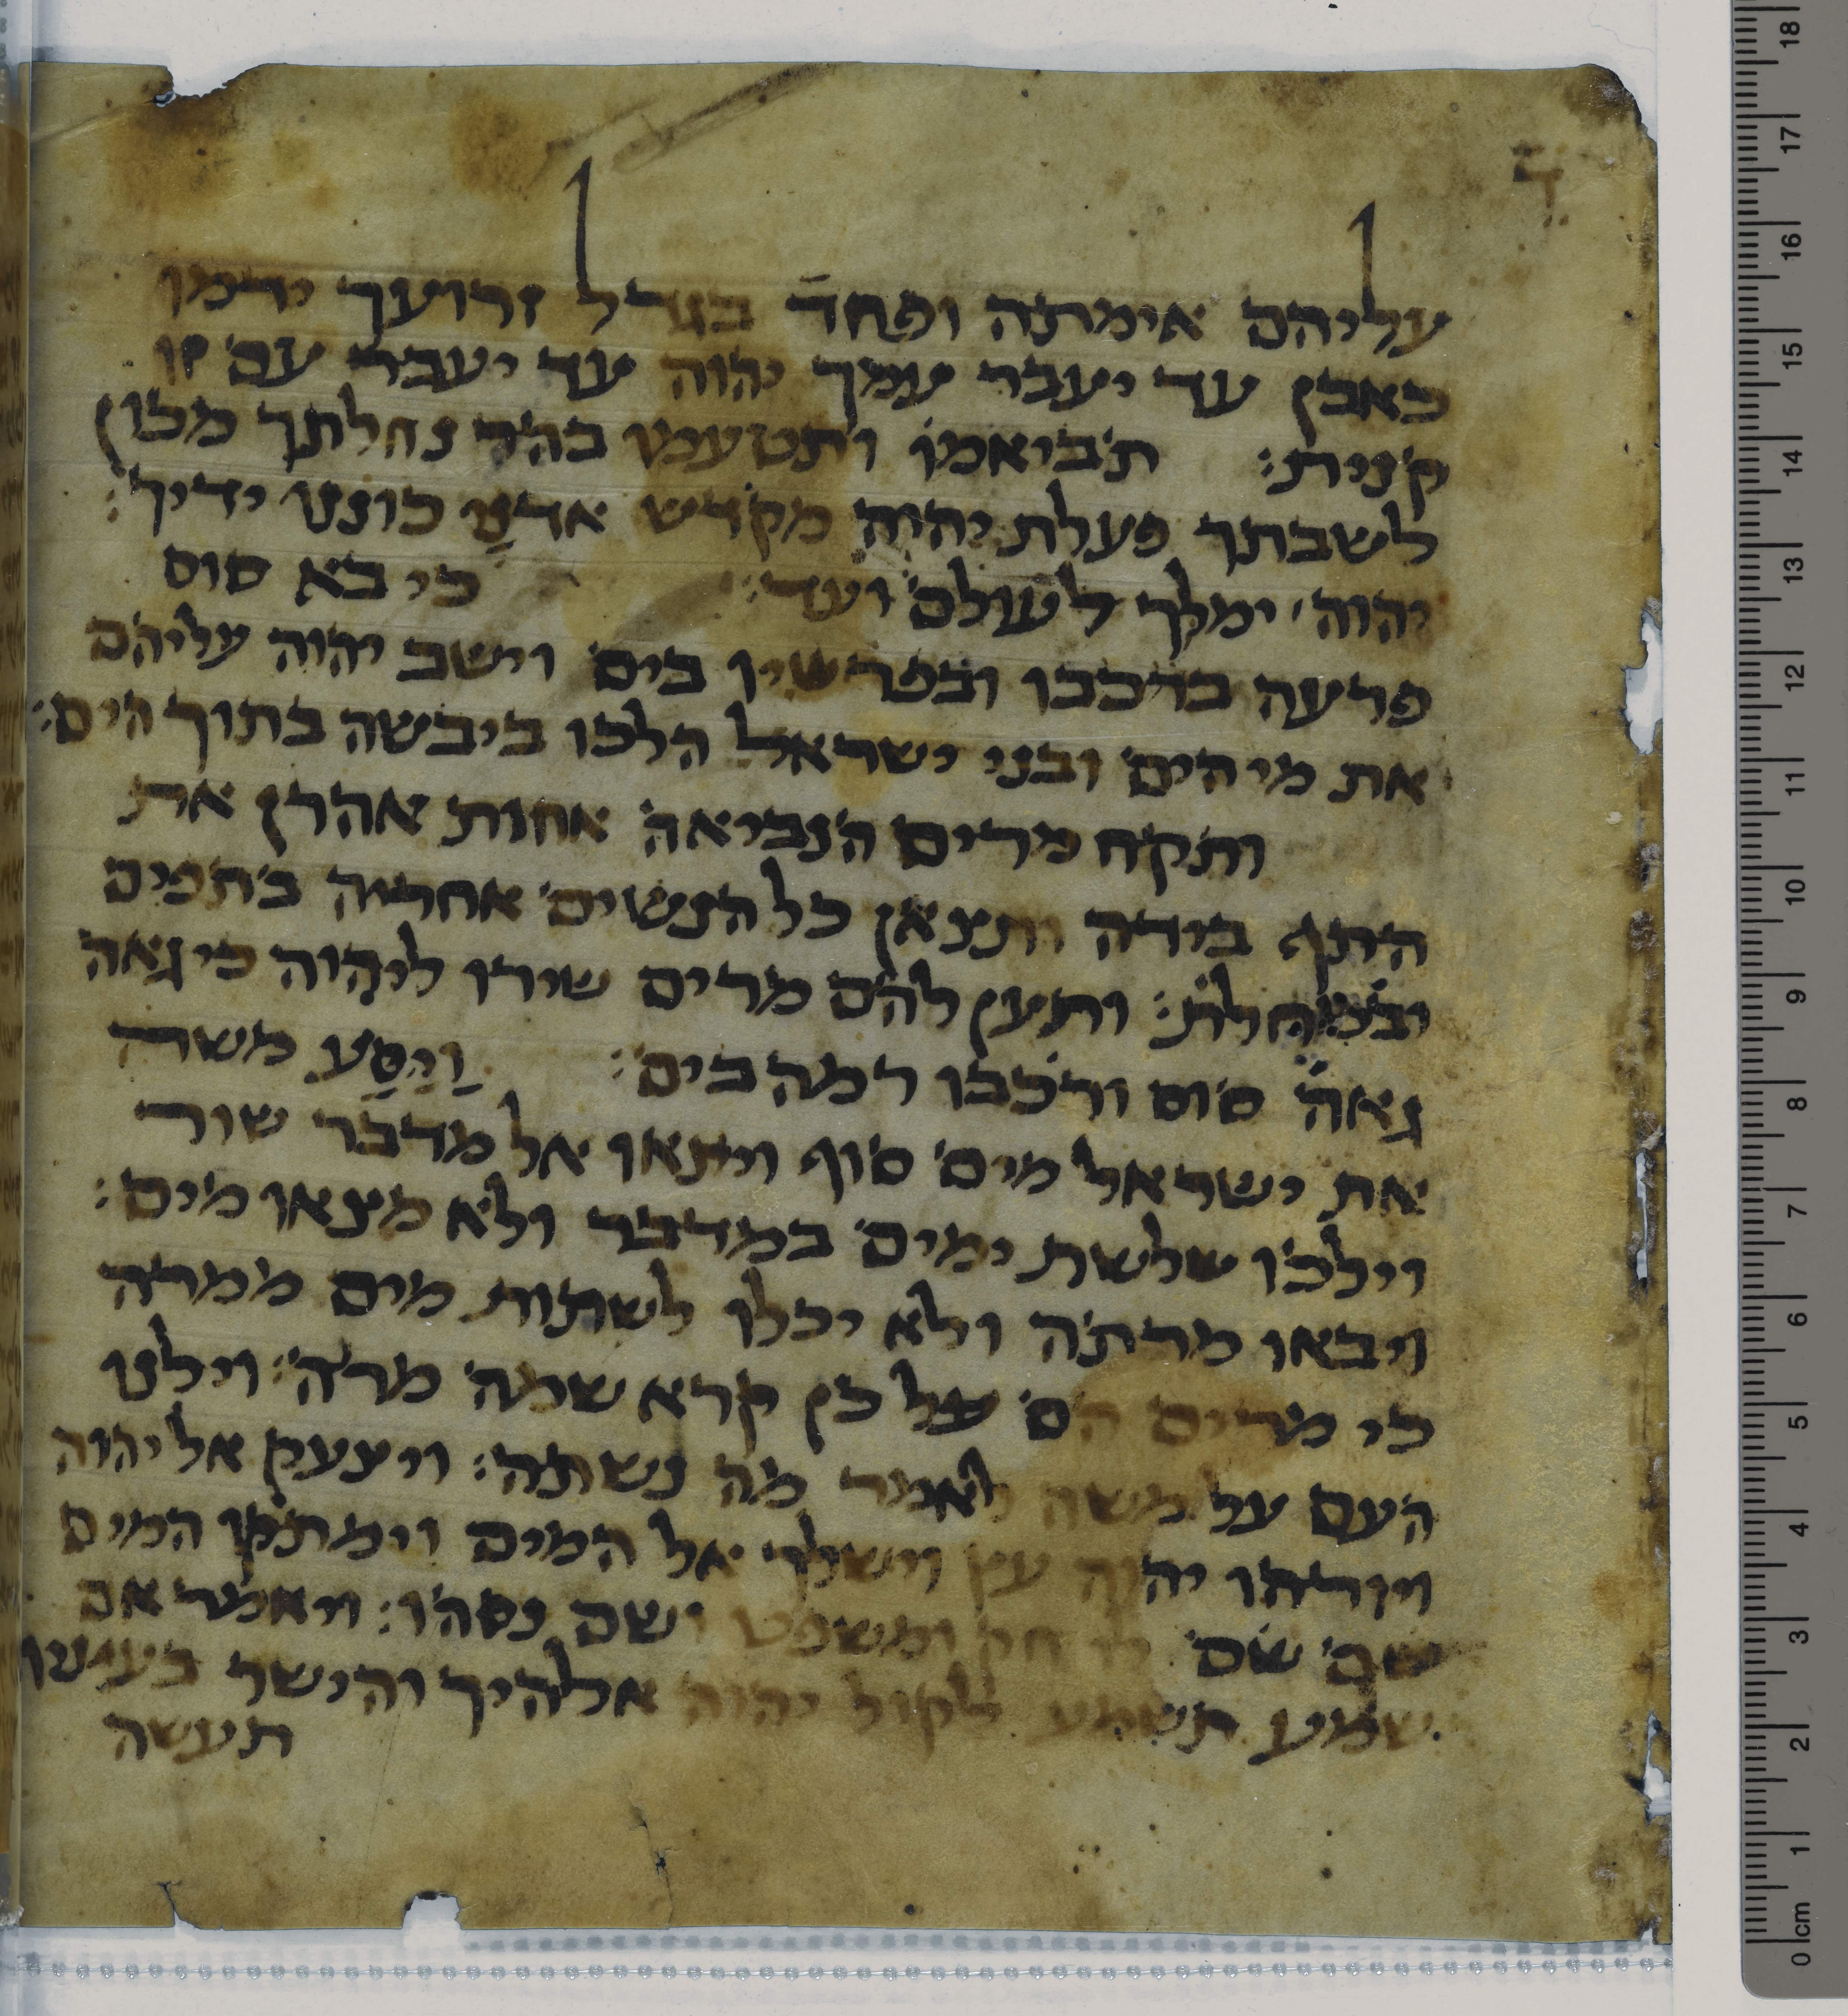 ד
עליהם אימתה ופחד בגדל זרועך ידמו
כאבן עד יעבר עמך יהוה עד יעבר עם זו
קנית: תביאמו ותטעמו בהר נחלתך מכון
לשבתך פעלת יהוה מקדש אדני כוננו ידיך:
יהוה ימלך לעולם ועד: כי בא סוס
פרעה ברכבו ובפרשיו בים וישב יהוה עליהם
את מי הים ובני ישראל הלכו ביבשה בתוך הים:
ותקח מרים הנביאה אחות אהרן את
התף בידה ותצאן כל הנשים אחריה בתפים
ובמחלת: ותען להם מרים שירו ליהוה כי גאה
גאה סוס ורכבו רמה בים: ויסע משה
את ישראל מים סוף ויצאו אל מדבר שור
וילכו שלשת ימים במדבר ולא מצאו מים:
ויבאו מרתה ולא יכלו לשתות מים ממרה
כי מרים הם על כן קרא שמה מרה: וילנו
העם על משה לאמר מה נשתה: ויצעק אל יהוה
ויורהו יהוה עץ וישלך אל המים וימתקו המים
שם שם לו חק ומשפט ושם נסהו: ויאמר אם
שמע תשמע לקול יהוה אלהיך והישר בעיניו
תעשה